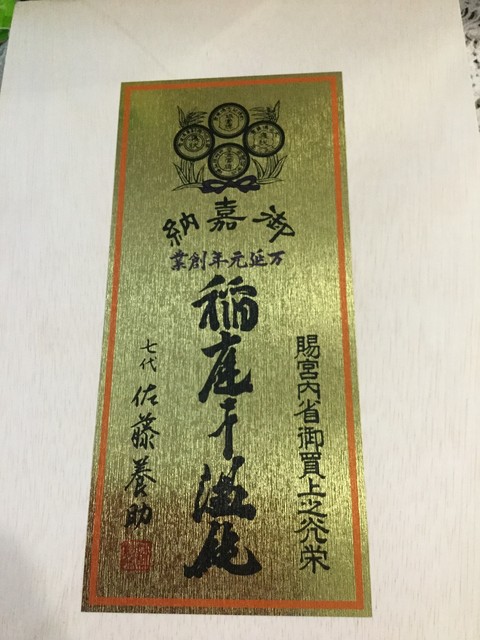 御嘉納
万延元年創業
賜宮内省御買上之光栄
稲庭干温飩
七代 佐藤養助